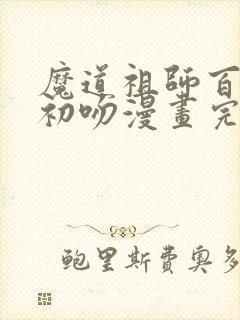 魔道祖師百
初吻漫畫完
鲍里斯費奥多